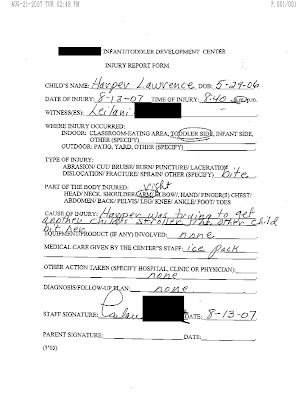 AUG-21-2007 TUE 02:46 PM P.001/001
INFANT/TODDLER DEVELOPMENT CENTER
INJURY REPORT FORM
CHILD'S NAME: Harper Lawrence DOB: 5-29-06
DATE OF INJURY: 8-13-07 TIME OF INJURY: 8:40 p.m.
WITNESS(ES): Leilani
WHERE INJURY OCCURRED:
INDOOR: CLASSROOM-EATING AREA, TODDLER SIDE, INFANT SIDE,
OTHER (SPECIFY)
OUTDOOR: PATIO, YARD, OTHER (SPECIFY)
TYPE OF INJURY:
ABRASION/ CUT/ BRUISE/ BURN/ PUNCTURE/ LACERATION/
DISLOCATION/ FRACTURE/ SPRAIN/ OTHER (SPECIFY) bite
PART OF THE BODY INJURED: right
HEAD/ NECK/ SHOULDER/ ARM/ ELBOW/ HAND/ FINGER(S)/ CHEST/
ABDOMEN/ BACK/ PELVIS/ LEG/ KNEE/ ANKLE/ FOOT/ TOES
CAUSE OF INJURY: Harper was trying to get
another child's stroller. The other child
bit her.
EQUIPMENT/PRODUCT (IF ANY) INVOLVED: none
MEDICAL CARE GIVEN BY THE CENTER'S STAFF: ice pack
OTHER ACTION TAKEN (SPECIFY HOSPITAL, CLINIC OR PHYSICIAN):
none
DIAGNOSIS/FOLLOW-UP PLAN: none
STAFF SIGNATURE: DATE: 8-13-07
PARENT SIGNATURE: DATE: